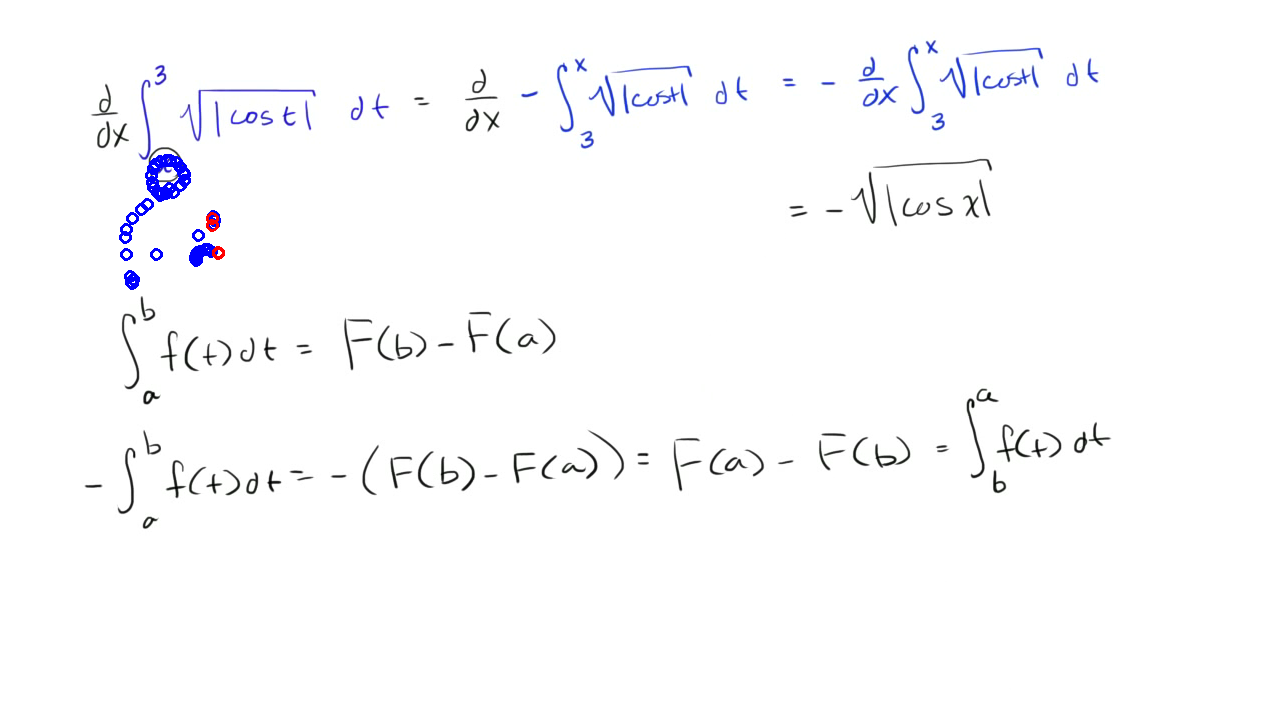 d/dx ∫^3 √|cos t| dt = d/dx - ∫_3^x √|cos t| dt = - d/dx ∫_3^x √|cos t| dt
= - √|cos x|
∫_a^b f(t) dt = F(b) - F(a)
- ∫_a^b f(t) dt = - (F(b) - F(a)) = F(a) - F(b) = ∫_b^a f(t) dt